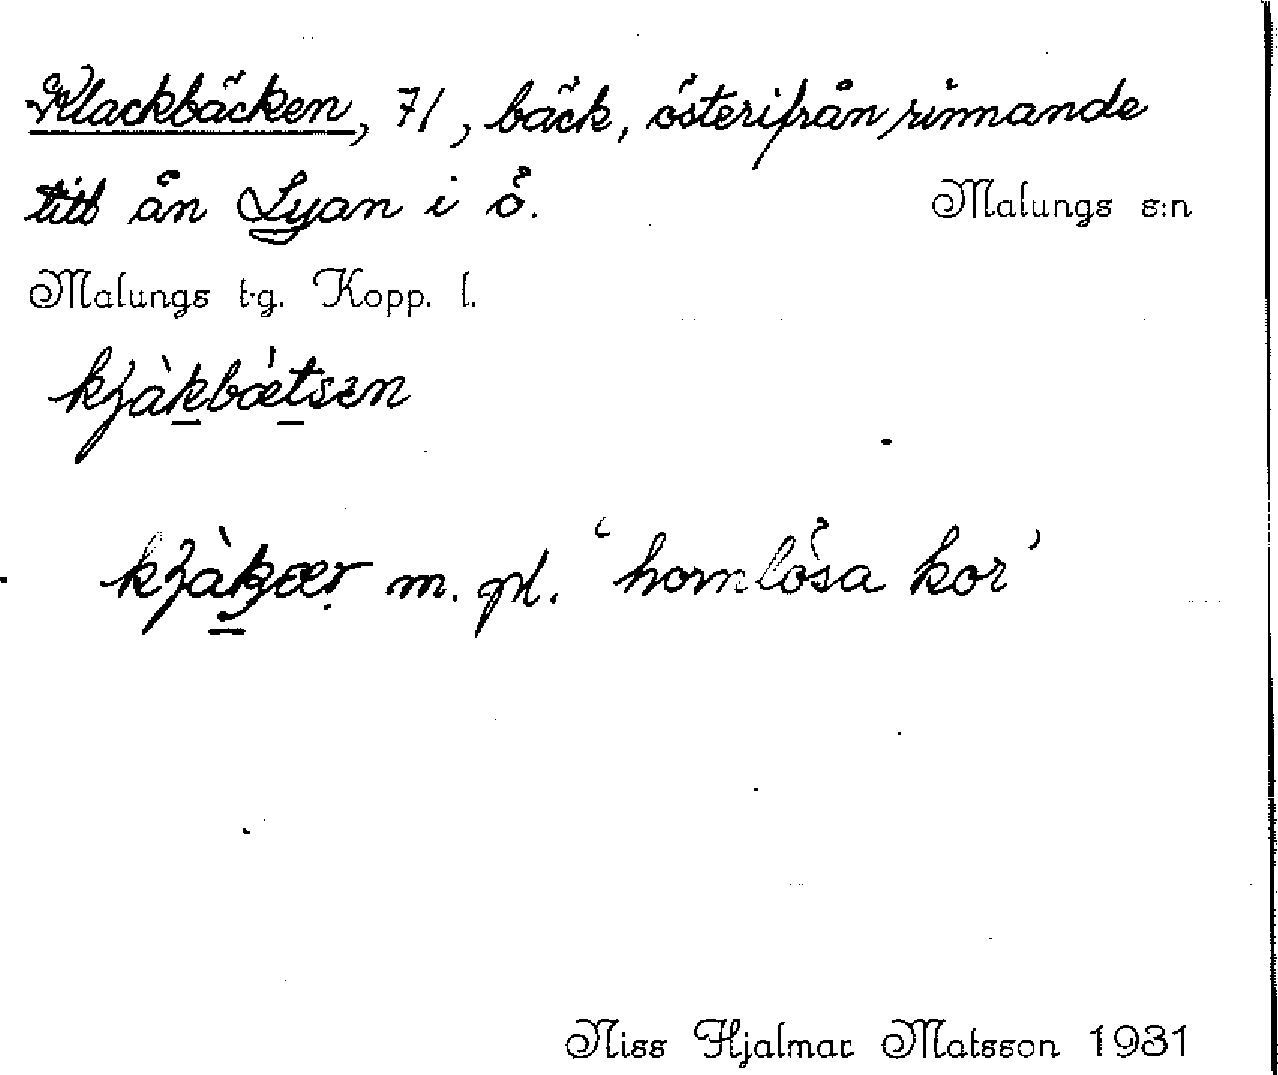 Klackbäcken, 71, bäck, österifrån rinnande
till ån Lyan i ö. Malungs s:n
Malungs t-g. Kopp. l.
kjàkbǽtsen
kjàkær m. pl. ‘hornlösa kor’
Niss Hjalmar Matsson 1931